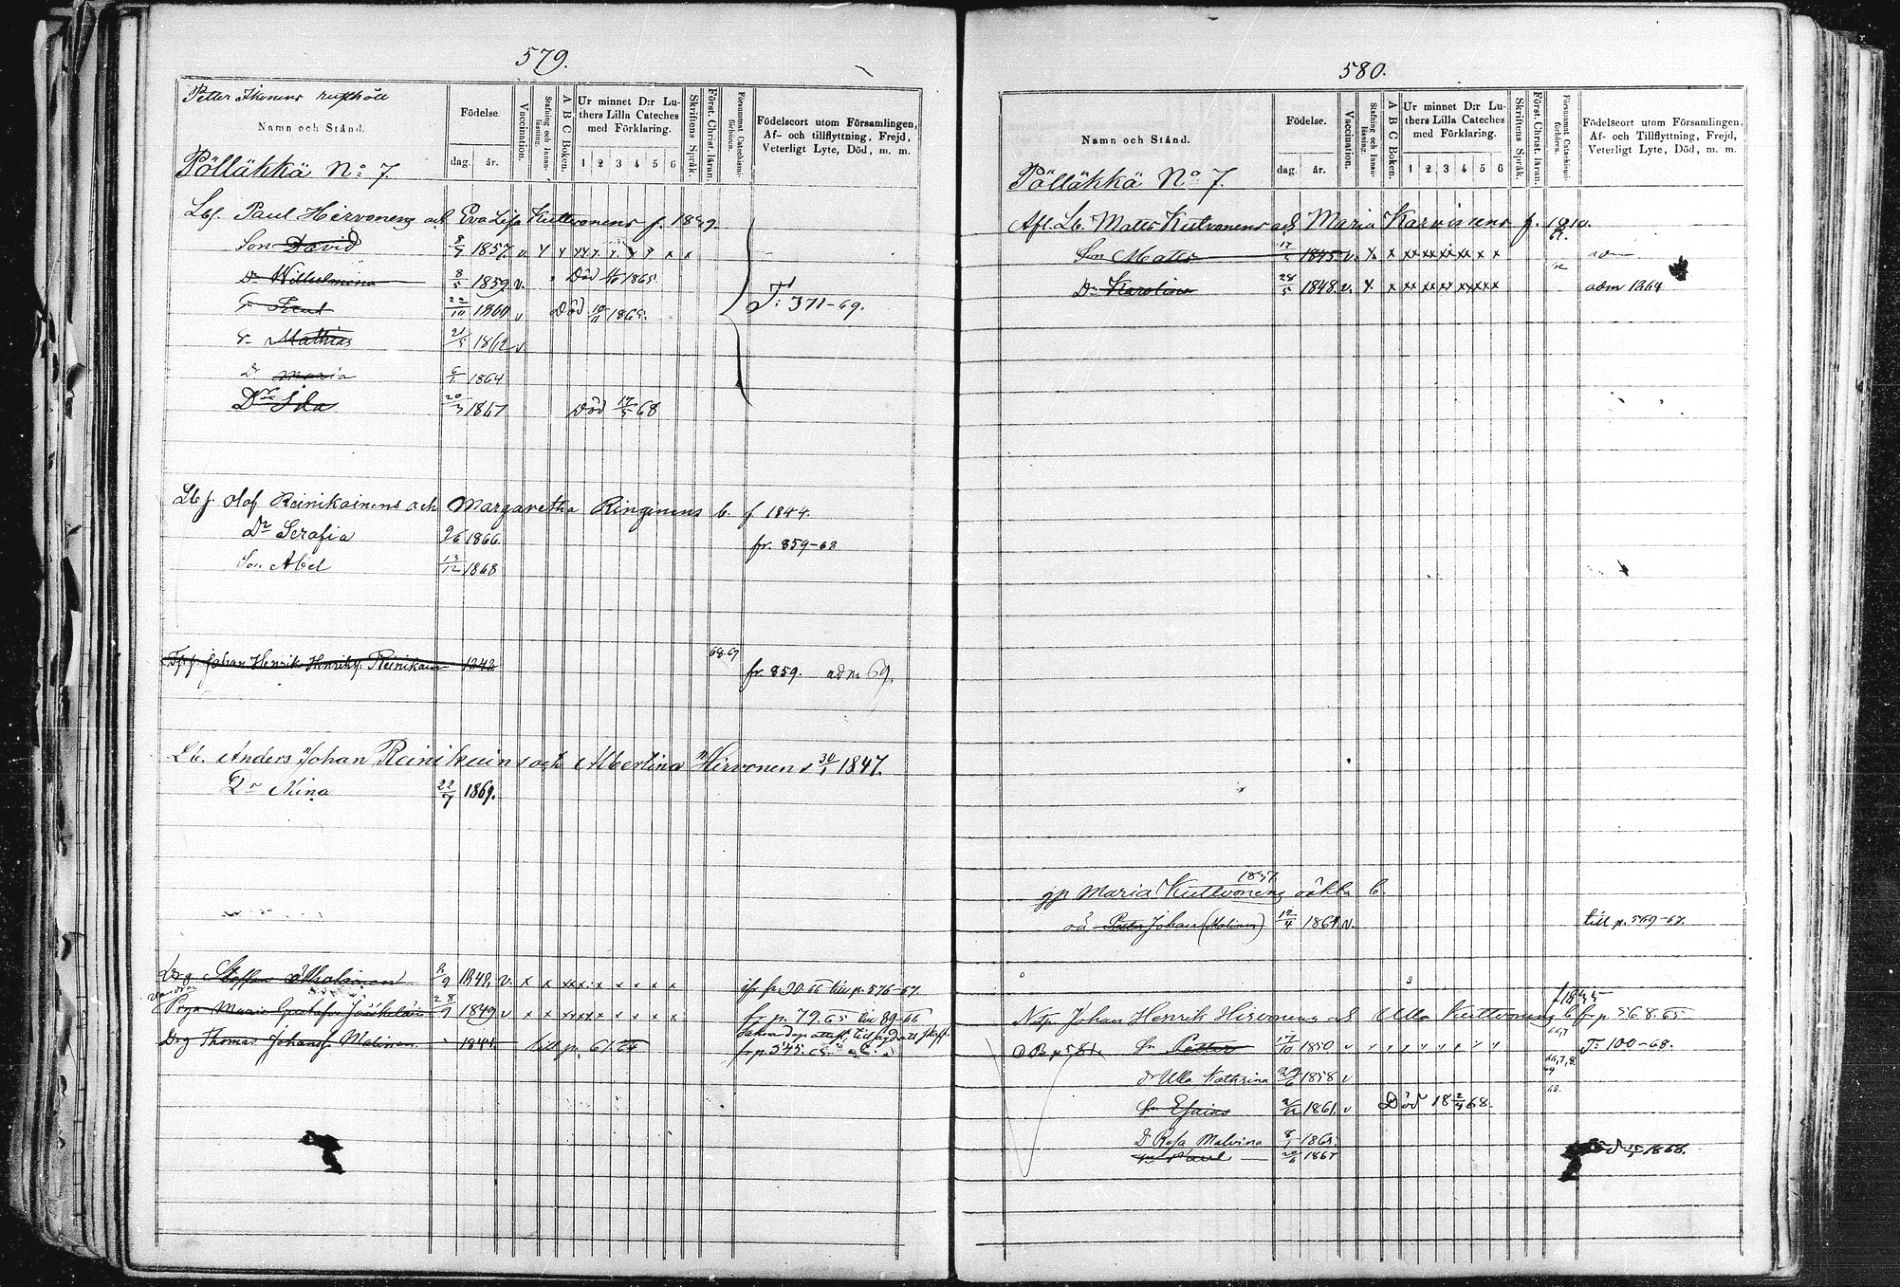 579.
Petter Ikonens rusthåll
Namn och Stånd.
Födelse.
dag. år.
Vaccination.
Stafning och Innanläsning.
A B C Boken.
Ur minnet D:r Luthers Lilla Cateches med Förklaring.
1 2 3 4 5 6
Skriftens Språk.
Först. Christ. läran.
Försummat Catechismiförhören.
Födelseort utom Församlingen, Af- och tillflyttning, Frejd, Veterligt Lyte, Död, m. m.
Pölläkkä No: 7.
Lbf. Paul Hirvonens och Eva Lisa Kuttvonens f. 1829.
Son David 8/7 1857. v. x x x x x x x x x x
Dr Wilhelmina 8/5 1859 v. Död 1865.
22/10 1860 v Död 10/11 1865.
T: 371-69.
Mathias 21/5 1862 v.
Dr Maria 6/1 1864
Dr Ida 20/3 1867 Död 17/5 68
Lbf Olof Reinikainens och Margaretha Ringinens b. f 1844.
Dr Serafia 9/6 1866. fr. 859-68
Son Abel 13/12 1868
Johan Henrik Henriksf. Reinikain 1842 68.69 fr. 859. adm 69.
Lb. Anders Johan Reinikain och Albertina Hirvonens 30/1 1847.
Dr Mina 22/7 1869.
Drg Staffan 2/9 1842. v. x x xxx x x x x x fr. 90.66 till p. 576-67.
Pga Maria Gustafsr Jääskeläin 28/9 1849 v x x xxxx x x x x fr. p. 79.65 till 89.66
Drg Thomas Johansf. Malinen 1844. till p. 61.64 fr p. 545.
580.
Namn och Stånd.
Födelse.
dag. år.
Vaccination.
Stafning och Innanläsning.
A B C Boken.
Ur minnet D:r Luthers Lilla Cateches med Förklaring.
1 2 3 4 5 6
Skriftens Språk.
Först. Christ. läran.
Försummat Catechismiförhören.
Födelseort utom Församlingen, Af- och Tillflyttning, Frejd, Veterligt Lyte, Död, m. m.
Pölläkkä No: 7.
Afl. Lb. Matts Kutvonens och Maria Karvinens f. 1810.
Son Matts 17/5 1845 v. x x xx xx xx xx x adm
Dr Karolina 28/5 1848. v. x x xx xx xxxxx adm 1864
1837.
gp Maria Kuttvonens oäkta b.
oä Petter Johan (Malinen) 12/4 1864 v. till p. 569-67.
f 1835
Johan Henrik Hirvonens och Ulla Kuttvonens b fr p. 568.65
Sn Petter 17/10 1850 v T: 100-68.
Dr Ulla Kathrina 1858 v
Sn Esaias 1861. v Död 18 2/4 68.
D Rosa Malvina 8/1 1865.
Sn Paul 1867 1868.